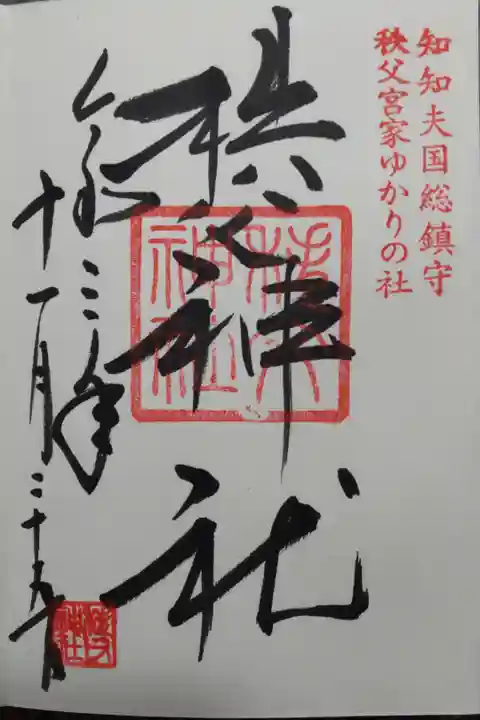 知知夫国総鎮守
秩父宮家ゆかりの社
秩父神社
令和三年
十一月二十九日
秩父神社